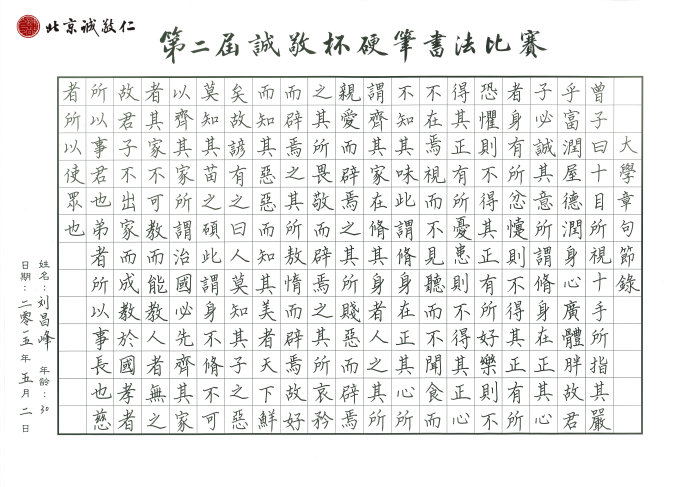 北京诚敬仁
第二屆誠敬杯硬筆書法比賽
大學章句節錄
曾子曰十目所視十手所指其嚴
乎富潤屋德潤身心廣體胖故君
子必誠其意所謂脩身在正其心
者身有所忿懥則不得其正有所
恐懼則不得其正有所好樂則不
得其正有所憂患則不得其正心
不在焉視而不見聽而不聞食而
不知其味此謂脩身在正其心所
謂齊其家在脩其身者人之其所
親愛而辟焉之其所賤惡而辟焉
之其所畏敬而辟焉之其所哀矜
而辟焉之其所敖惰而辟焉故好
而知其惡惡而知其美者天下鮮
矣故諺有之曰人莫知其子之惡
莫知其苗之碩此謂身不脩不可
以齊其家所謂治國必先齊其家
者其家不可教而能教人者無之
故君子不出家而成教於國孝者
所以事君也弟者所以事長也慈
者所以使眾也
姓名：刘昌峰 年龄：30
日期：二零一五年五月二日